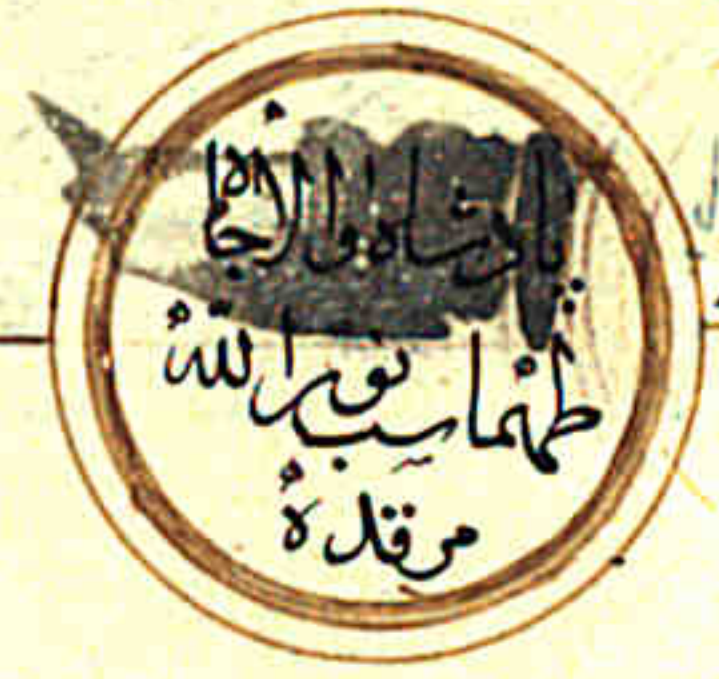 پادشاه والاجاه
طهماسب نور الله
مرقده